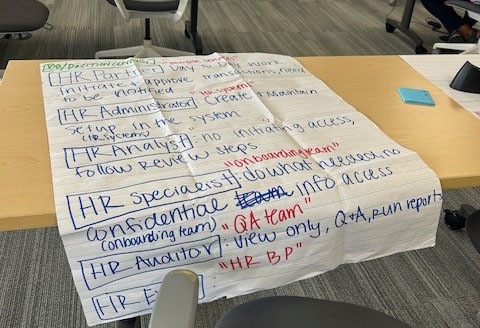 JOB/POSITION CONTROL
[HR Partner] "people leader" Day to Day work
initiate & approve transactions, need
to be notified "HR systems"
[HR Administrator] Create & Maintain
setup in the system
(HR systems)
[HR Analyst]: no initiating access,
follow review steps
"onboarding team"
[HR Specialist]: do what needed, no
confidential info access
(onboarding team) "QA team"
[HR Auditor]: view only, Q+A, run reports
"HR BP"
[HR E